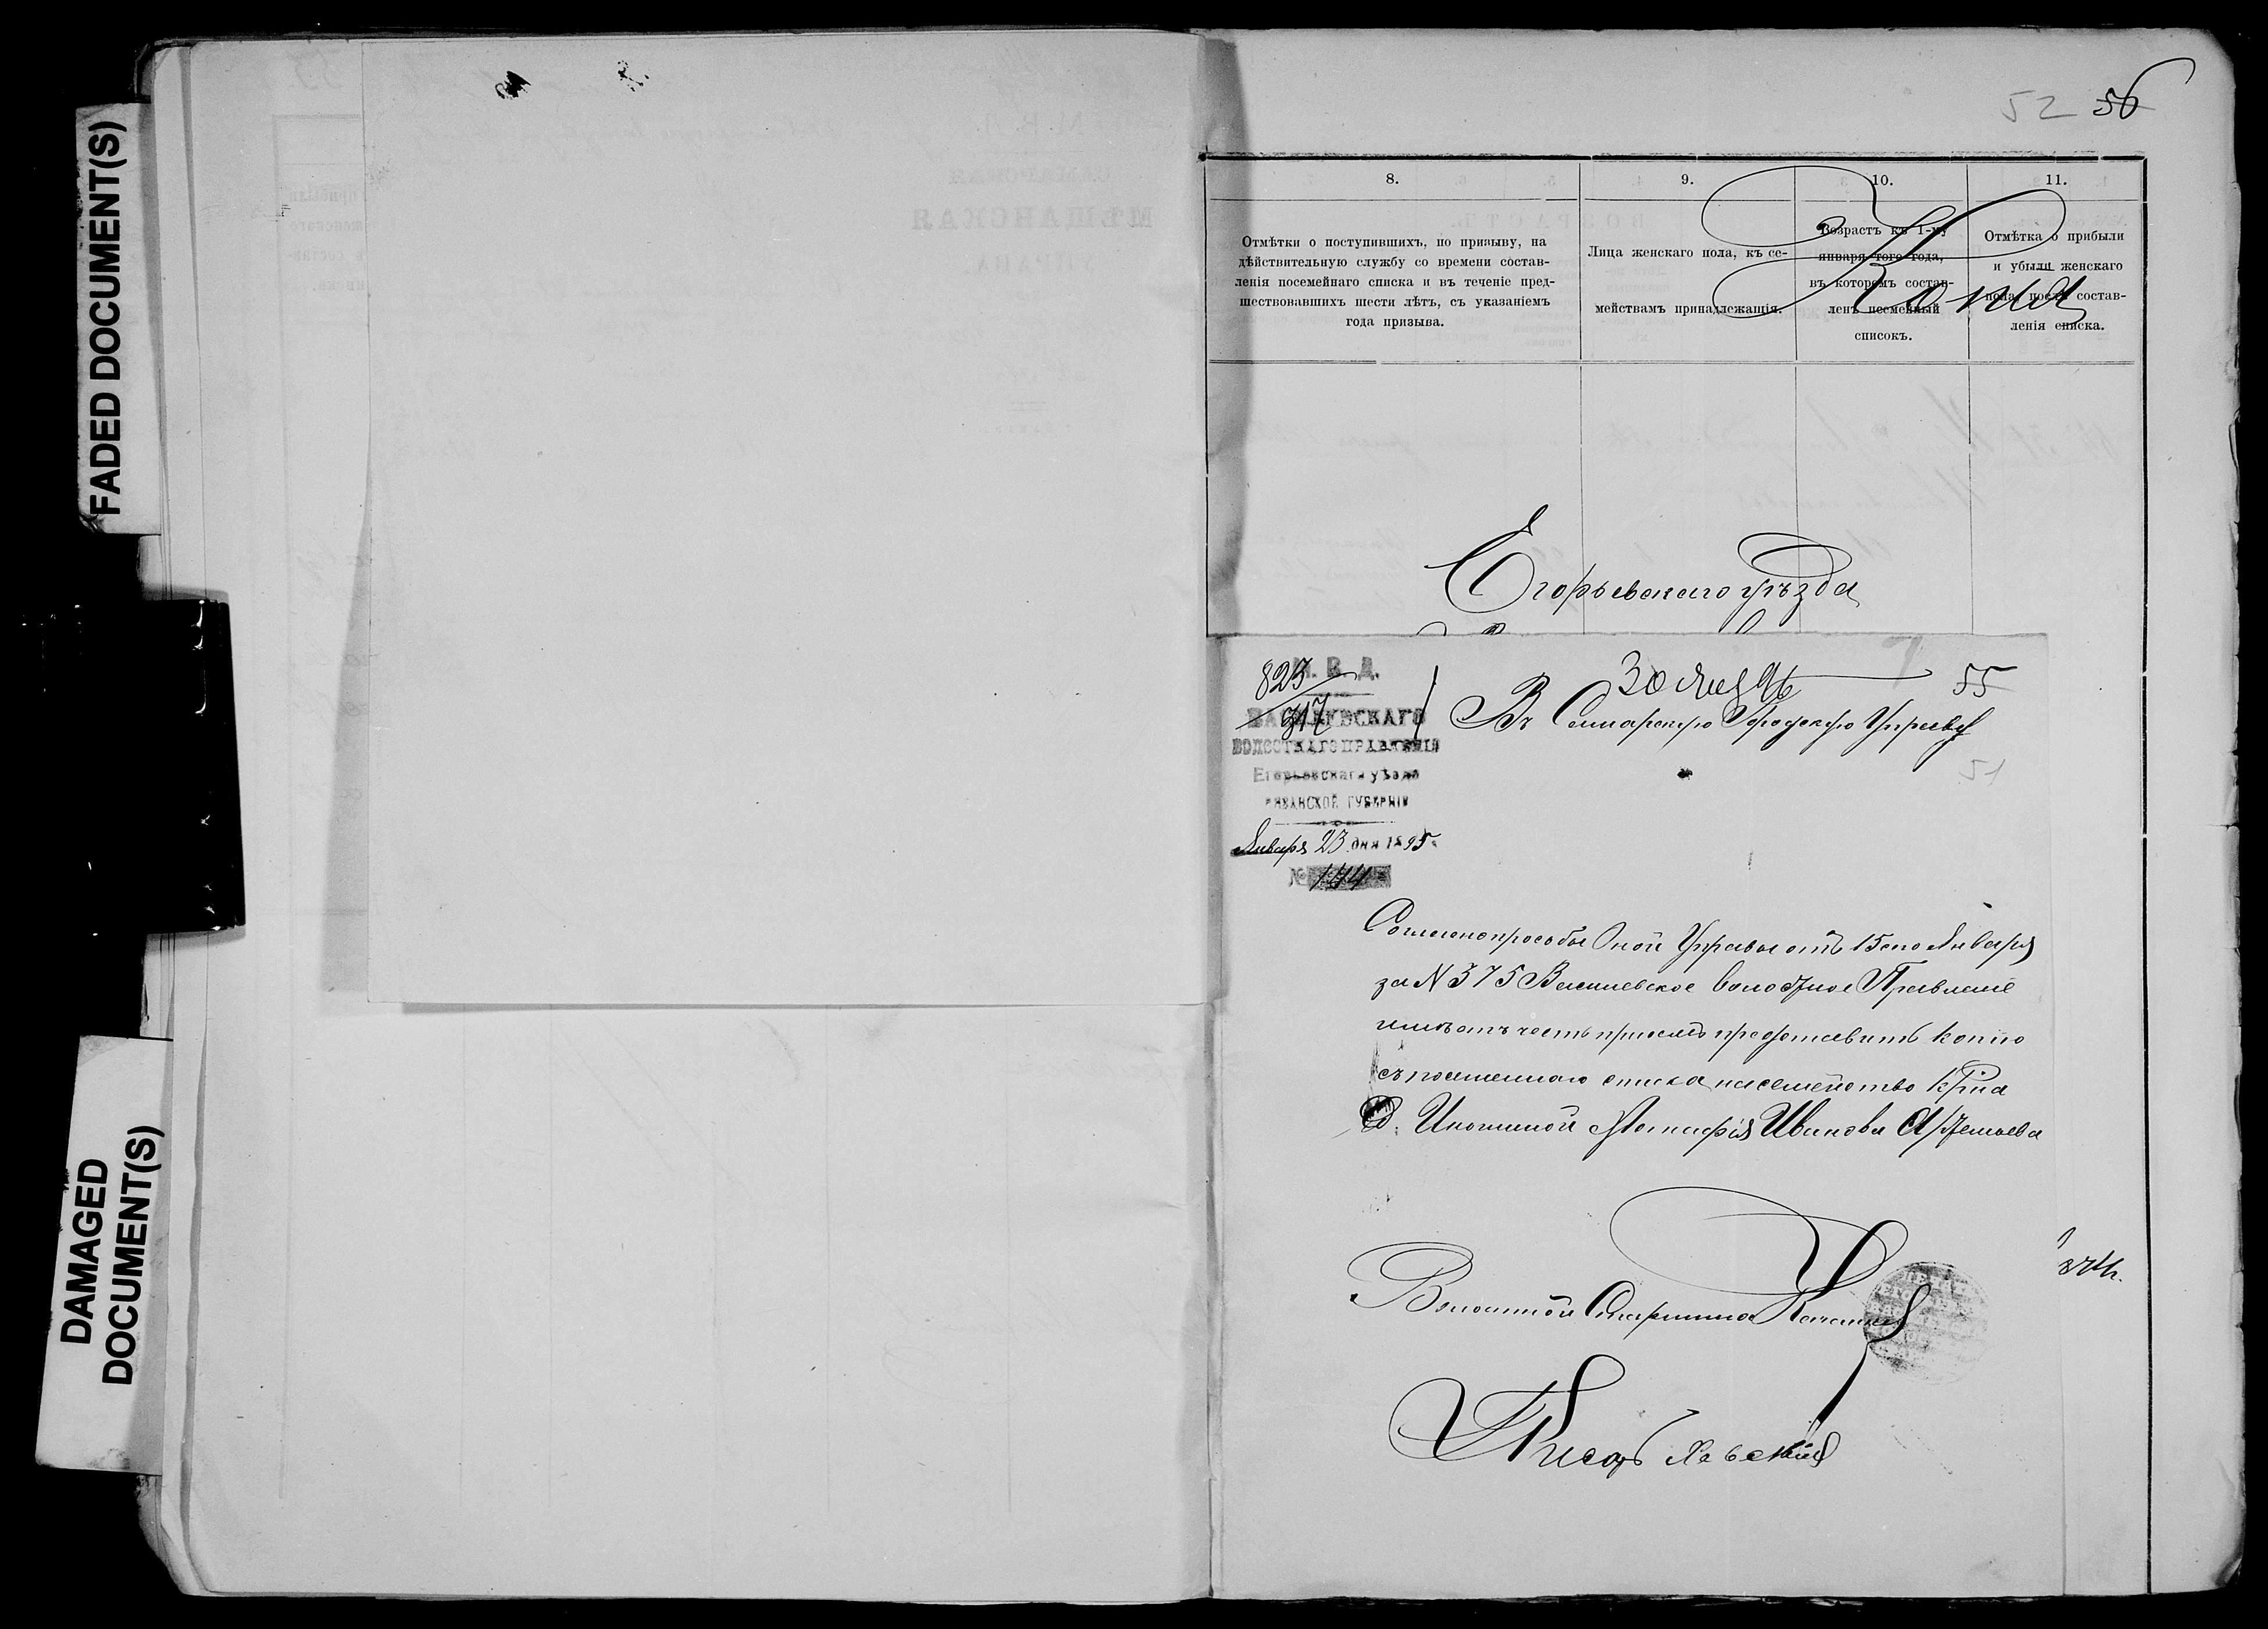 FADED DOCUMENT(S)
DAMAGED
DOCUMENT(S)
52 56
8. 9. 10. 11.
Отмѣтки о поступившихъ, по призыву, на
дѣйствительную службу со времени состав-
ленія посемейнаго списка и въ теченіе пред-
шествовавшихъ шести лѣтъ, съ указаніемъ
года призыва.
Лица женскаго пола, къ се-
мействамъ принадлежащія.
Возрастъ къ 1-му
января того года,
въ которомъ состав-
ленъ посемейный
списокъ.
Отмѣтка о прибыли
и убыли женскаго
пола, послѣ состав-
ленія списка.
Копія
Егорьевскаго уѣзда
823
317
М. В. Д.
ВАСИЛЕВСКАГО
ВОЛОСТНАГО ПРАВЛЕНІЯ
Егорьевскаго уѣзда
РЯЗАНСКОЙ ГУБЕРНІИ
Января 23 дня 1895
№ 174
30 Янв 96 55
Въ Самарскую Городскую Управу
51
Согласно просьбы Оной Управы отъ 15го Января
за № 375 Василевское Волостное Правленіе
имѣетъ честь при семъ представить копію
съ посемейнаго списка на семейство кр-на
Д. Иванова Артемьева
Волостной Старшина
Писарь